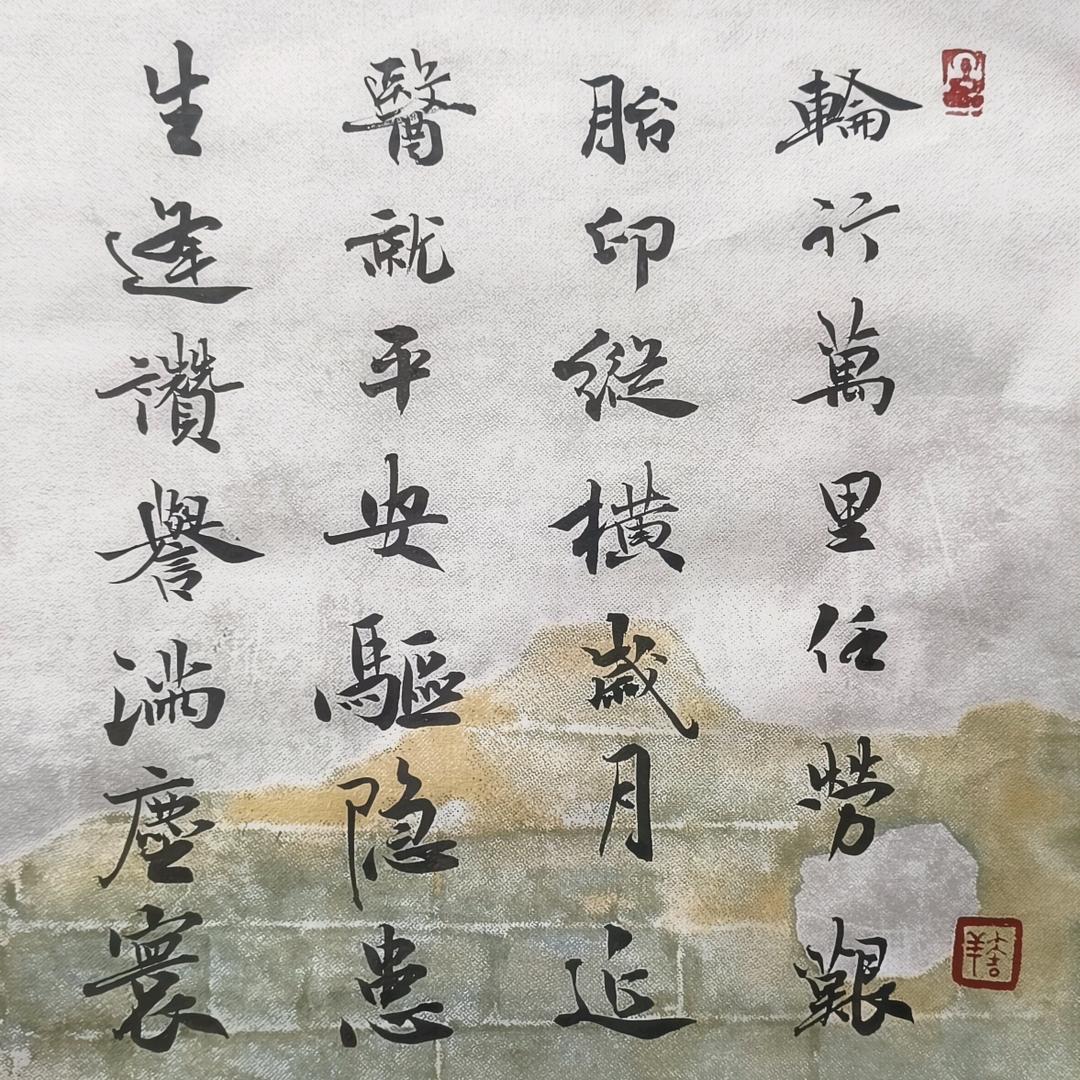 輪行萬里任勞艱
胎印縱橫歲月延
醫就平安驅隐患
生逢讚譽滿塵寰
大吉羊